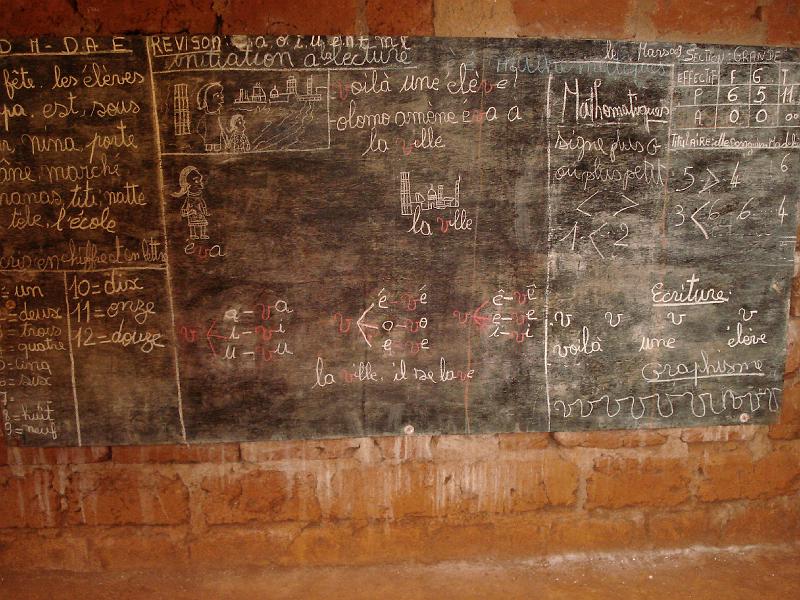 D M - D A E
fête. les élèves
pa. est, sous
nina, porte
âne marché
ananas, titi, natte
tele, l'école
en chiffre et en lettre
= un
= deux
= trois
= quatre
= cinq
= six
7 =
8 = huit
9 = neuf
10 = dix
11 = onze
12 = douze
REVISON: a o i u e n t m
initiation à lecture
voilà une élève!
olomo amène éva a
la ville
eva
la ville
v
a - va
i - vi
u - vu
v
é - vé
o - vo
e - ve
v
ê - vê
è - vè
î - vi
la ville, il se lave
le Mars 09
mathématiques
Mathématiques
signe plus G
ou plus petit
< >
1 < 2
SECTION: GRANDE
EFFECTIF F G T
P 6 5 11
A 0 0 00
Titulaire:
5 > 4 6
3 < 6 6 4
Ecriture:
v v v v
voilà une élève
Graphisme